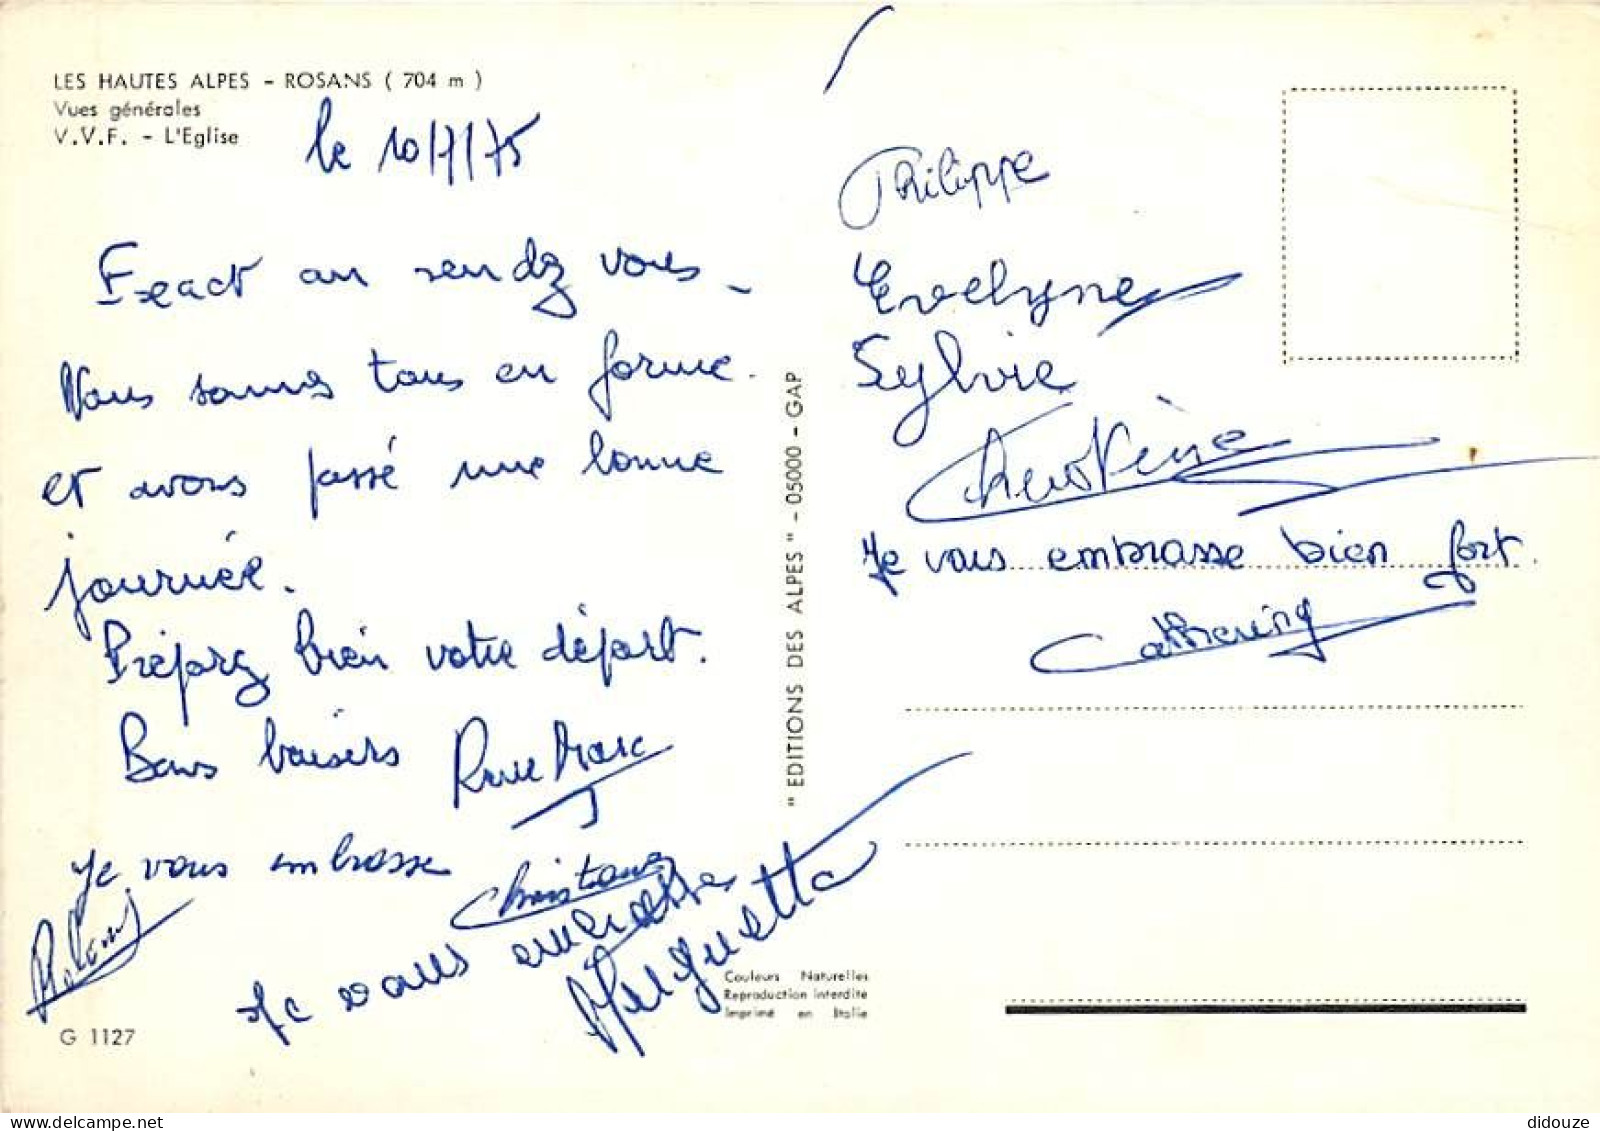 LES HAUTES ALPES - ROSANS ( 704 m )
Vues générales
V.V.F. - L'Eglise
le 10/7/75
Exact au rendez vous -
Nous sommes tous en forme.
et avons passé une bonne
journée.
Préparez bien votre départ.
Bons baisers
Je vous embrasse
Roland
Christiane
Je vous embrasse
Huguette
G 1127
"EDITIONS DES ALPES" - 05000 - GAP
Couleurs Naturelles
Reproduction interdite
Imprimé en Italie
Philippe
Evelyne
Sylvie
Je vous embrasse bien fort.
Catherine
didouze